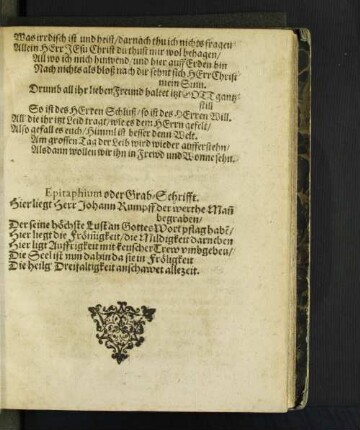 Was irrdisch ist und heist/ darnach thu ich nichts fragen/
Allein HErr JEsu Christ du thust mir wol behagen/
All wo ich mich hinwend/ und hier auff Erden bin
Nach nichts als bloß nach dir sehnt sich HErr Christ
mein Sinn.
Drumb all ihr lieben Freund haltet itzt GOTT gantz
still
So ist des HErren Schluß/ so ist des HErren Will.
All' die ihr itzt Leid tragt/ wie es dem HErrn gefelt/
Also gefall es euch/ Himml ist besser denn Welt.
Am grossen Tag der Leib wird wieder aufferstehn/
Alsdann wollen wir ihn in Frewd und Wonne sehn.
Epitaphium oder Grab-Schrifft.
Hier liegt Herr Johann Rumpff der werthe Mañ
begraben/
Der seine höchste Lust an Gottes Wort pflag habẽ/
Hier liegt die Frömigkeit/ die Mildigkeit darneben
Hier ligt Auffrigkeit mit keuscher Trew umbgebẽ/
Die Seel ist nun dahin da sie in Fröligkeit
Die heilge Dreifaltigkeit anschawet allezeit.